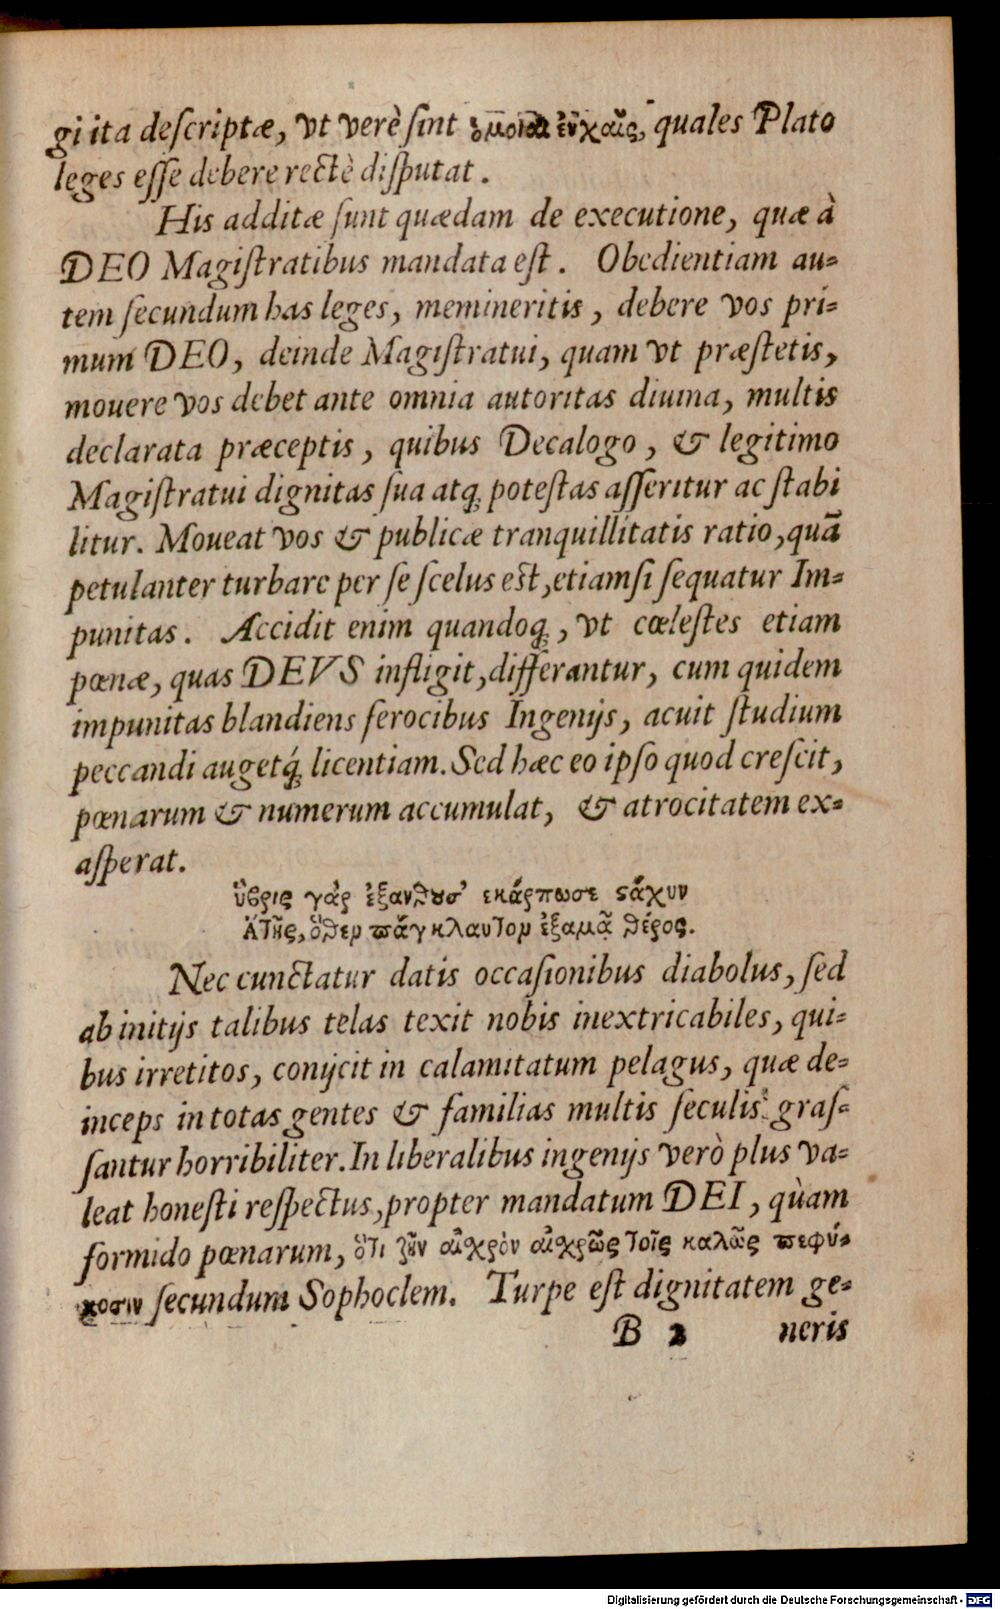 gi ita deſcriptæ, vt verè ſint ὅμοιαι ἐυχαῖς, quales Plato
leges eſſe debere rectè diſputat.
His additæ ſunt quædam de executione, quæ à
DEO Magiſtratibus mandata eſt. Obedientiam au-
tem ſecundum has leges, memineritis, debere vos pri-
mum DEO, deinde Magiſtratui, quam vt præſtetis,
mouere vos debet ante omnia autoritas diuina, multis
declarata præceptis, quibus Decalogo, & legitimo
Magiſtratui dignitas ſua atq; poteſtas aſſeritur ac ſtabi
litur. Moueat vos & publicæ tranquillitatis ratio, quã
petulanter turbare per ſe ſcelus eſt, etiamſi ſequatur Im-
punitas. Accidit enim quandoq;, vt cœleſtes etiam
pœnæ, quas DEVS infligit, differantur, cum quidem
impunitas blandiens ferocibus Ingenijs, acuit ſtudium
peccandi augetq́; licentiam. Sed hæc eo ipſo quod creſcit,
pœnarum & numerum accumulat, & atrocitatem ex-
aſperat.
ὕβρις γὰρ ἐξανθοῦσ' ἐκάρπωσε ϛάχυν
Ἄτης, ὅθεν πάγκλαυτον ἐξαμᾷ θέρος.
Nec cunctatur datis occaſionibus diabolus, ſed
ab initijs talibus telas texit nobis inextricabiles, qui-
bus irretitos, conijcit in calamitatum pelagus, quæ de-
inceps in totas gentes & familias multis ſeculis graſ-
ſantur horribiliter. In liberalibus ingenijs verò plus va-
leat honeſti reſpectus, propter mandatum DEI, quàm
formido pœnarum, ὅτι ζῆν αἰχρὸν αἰχρῶς τοῖς καλῶς πεφύ-
κοσιν ſecundum Sophoclem. Turpe eſt dignitatem ge-
B 2 neris
Digitalisierung gefördert durch die Deutsche Forschungsgemeinschaft - DFG